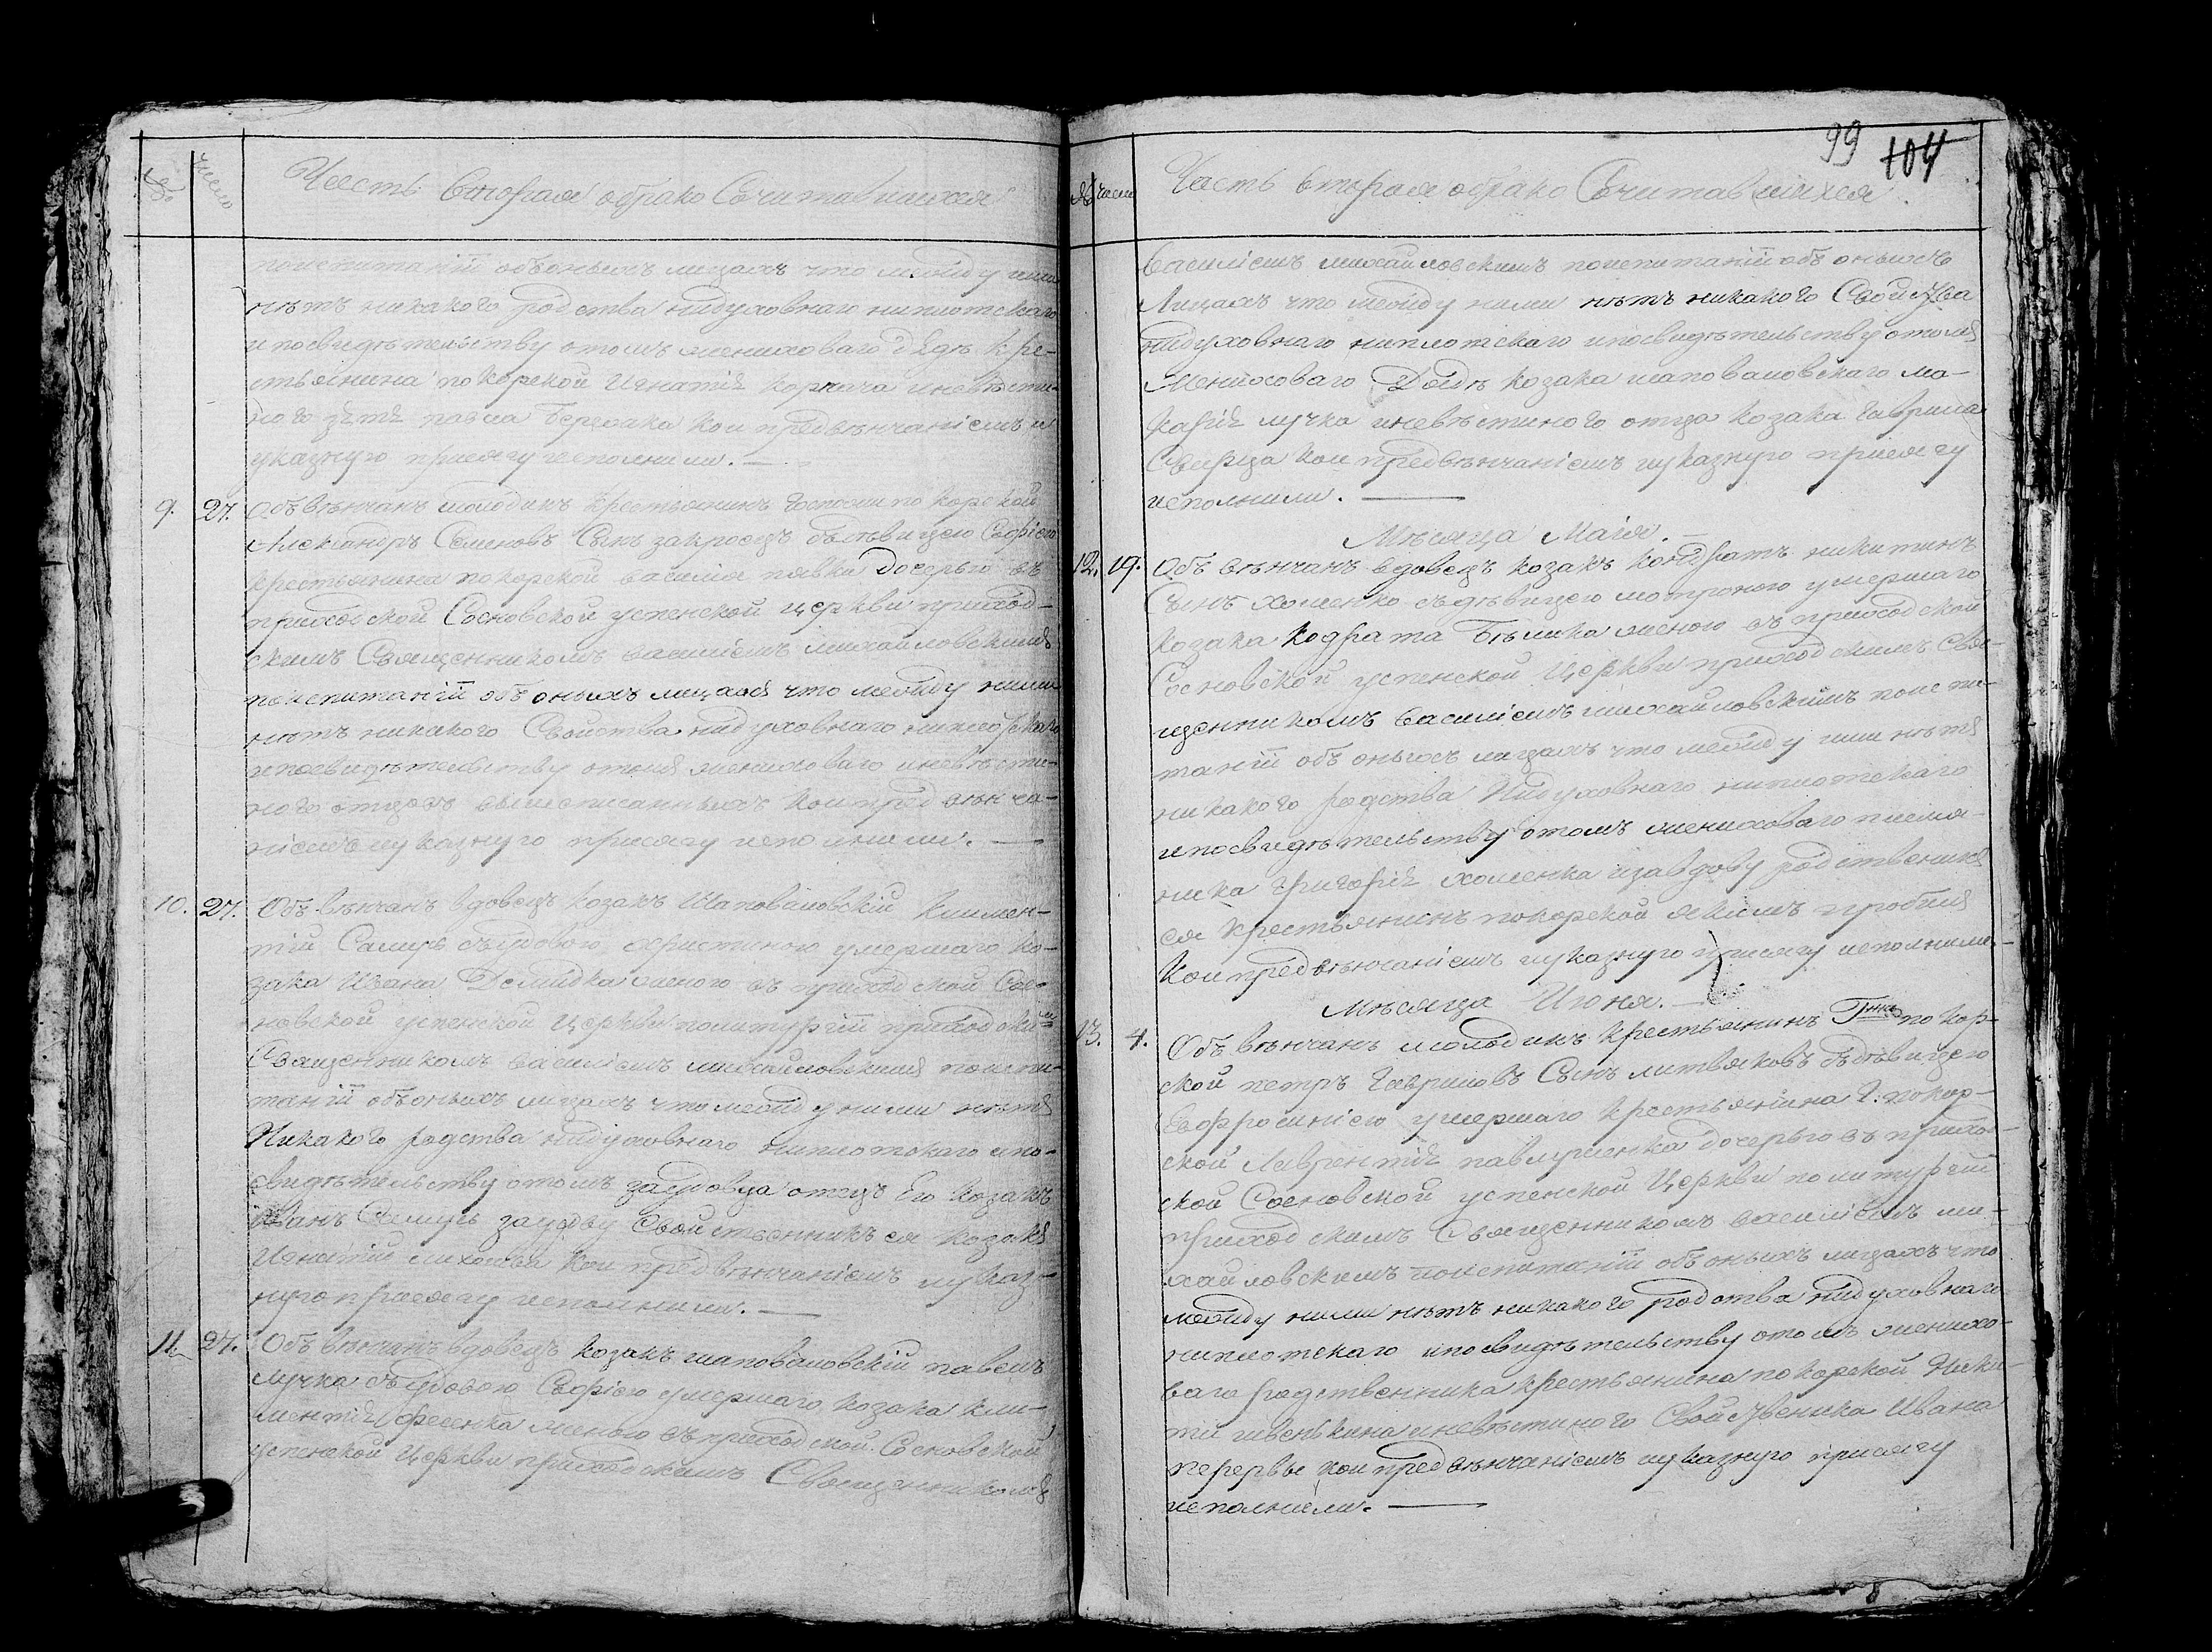 № число
Часть вторая обрако Сочитавшихся
поиспитаніи обоныхъ лицахъ что между ими
нѣтъ никакого родства нидуховнаго ниплотскаго
и посвидѣтельству отомъ жениховаго дядѣ кре-
стьянина покорской Игнатія коркача иневѣсти-
ного зятя павла
указную присягу исполнили. —
9. 27. Объ вѣнчанъ молодикъ крестьянинъ Госпожи покорской
Александръ Семеновъ Сынъ закроецъ съдѣвицею Софіею
крестьянина покорской василія пявки дочерью въ
приходской Сосновской успенской церкви приход-
скимъ Священникомъ василіемъ михайловскимъ
поиспитаніи объ оныхъ лицахъ что между ними
нѣтъ никакого Свойства нидуховнаго ниплотскаго
ипосвидѣтельству отомъ жениховаго иневѣсти-
ного отцовъ вышеписанныхъ кои предъ вѣнча-
ніемъ иуказную присягу исполнили. —
10. 27. Объ вѣнчанъ вдовецъ козакъ Шаповаловскій Климен-
тій Самусь съудовою христиною умершаго ко-
зака Ивана Демидка женою въ приходской Сос-
новской успенской Церкви политургіи приходским
Священникомъ василіемъ михайловскимъ поиспи-
таніи обоныхъ лицахъ что между ними нѣтъ
Никакого родства нидуховнаго ниплотскаго ипо-
свидѣтельству отомъ заудовца отецъ Его козакъ
Иванъ Самусь заудову Свойственникъ ея козакъ
Игнатій кои предвѣнчаніемъ иуказ-
ную присягу исполнили. —
11. 27. Объ вѣнчанъ вдовецъ козакъ шаповаловскій павелъ
лучка съудовою Софіею умершаго козака кли-
ментія фесенка женою въ приходской Сосновской
успенской Церкви приходскимъ Священникомъ
99 104
№ число
Часть вторая обрако Сочитавшихся
василіемъ михайловскимъ поиспитаніи объ оныхъ
Лицахъ что между ними нѣтъ никакого Свойства
нидуховнаго ниплотскаго ипосвидѣтельству отомъ
Жениховаго Дядѣ козака шаповаловскаго ма-
карія лучка иневѣстиного отца козака гаврила
кои предвѣнчаніемъ иуказную присягу
исполнили. —
Мѣсяца Маія. —
12. 19. Объ вѣнчанъ вдовецъ козакъ кондратъ никитинъ
Сынъ хоменко съдѣвицею мотроною умершаго
козака кодрата бѣлика женою въ приходской
Сосновской успенской Церкви приходскимъ Свя-
щенникомъ василіемъ михайловскимъ поиспи-
таніи объ оныхъ лицахъ что между ими нѣтъ
никакого родства Нидуховнаго ниплотскаго
ипосвидѣтельству отомъ жениховаго племя-
ника григорія хоменка изавдову родственикъ
ея крестьянинъ покорской якимъ
кои предвѣнчаніемъ иуказную присягу исполнили —
Мѣсяца Июня. —
13. 4. Объ вѣнчанъ молодикъ крестьянинъ Гжи покор-
ской петръ гавриловъ Сынъ литвяковъ съдѣвицею
Евфросиніею умершаго крестьянина г: покор-
ской Лаврентія павлушенка дочерью въ приход-
ской Сосновской успенской Церкви политургіи
приходскимъ Священникомъ василіемъ ми-
хайловскимъ поиспитаніи объ оныхъ лицахъ что
между ними нѣтъ никакого родства нидуховнаго
ниплотскаго ипосвидѣтельству отомъ женихо-
ваго родственника крестьянина покорской
иневѣстиного Свойственика Ивана
перервы кои предвѣнчаніемъ иуказную присягу
исполнили. —